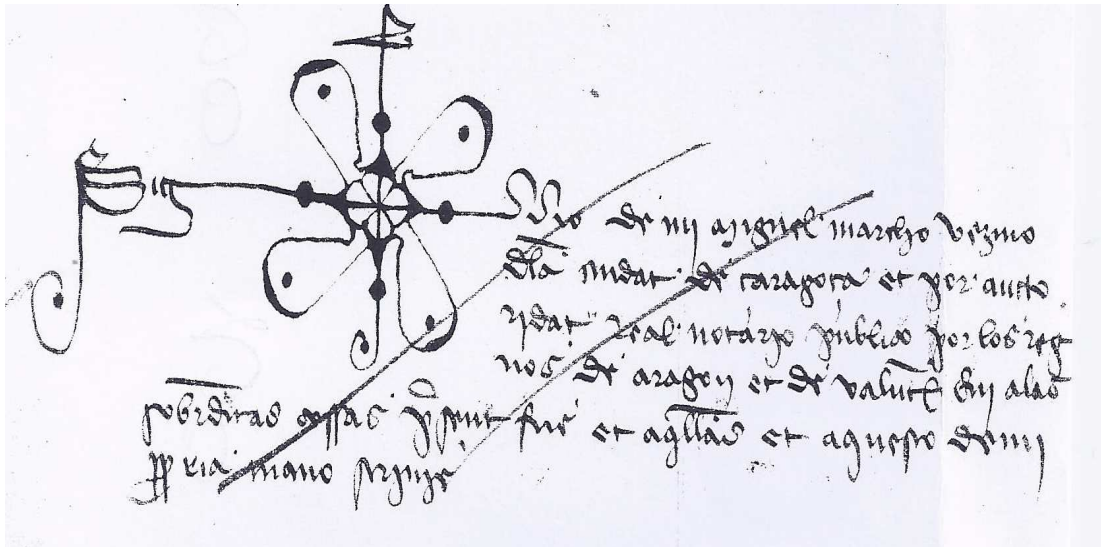 Sig no de mi miguel marcho vezino
dla ciudat de caragoça et por aucto
ridat real notario publico por los reg
nos de aragon et de valenc Qui a las
sobrditas cossas psent fue et aqllas et aquesto de mi
ppria mano scriuie